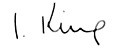 I. King